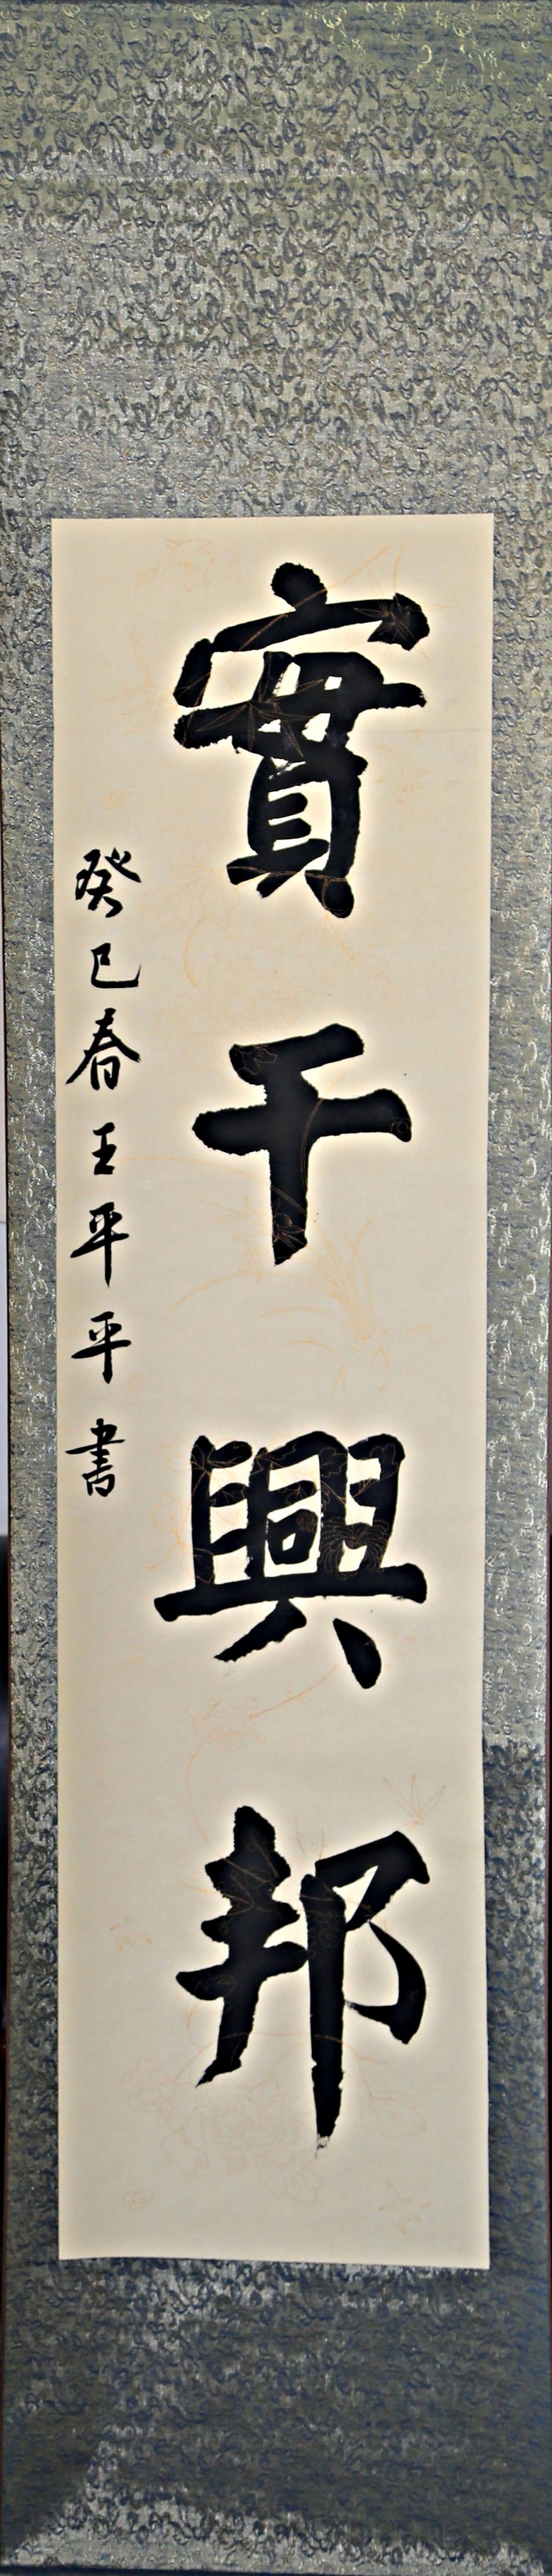 實干興邦
癸巳春王平平書